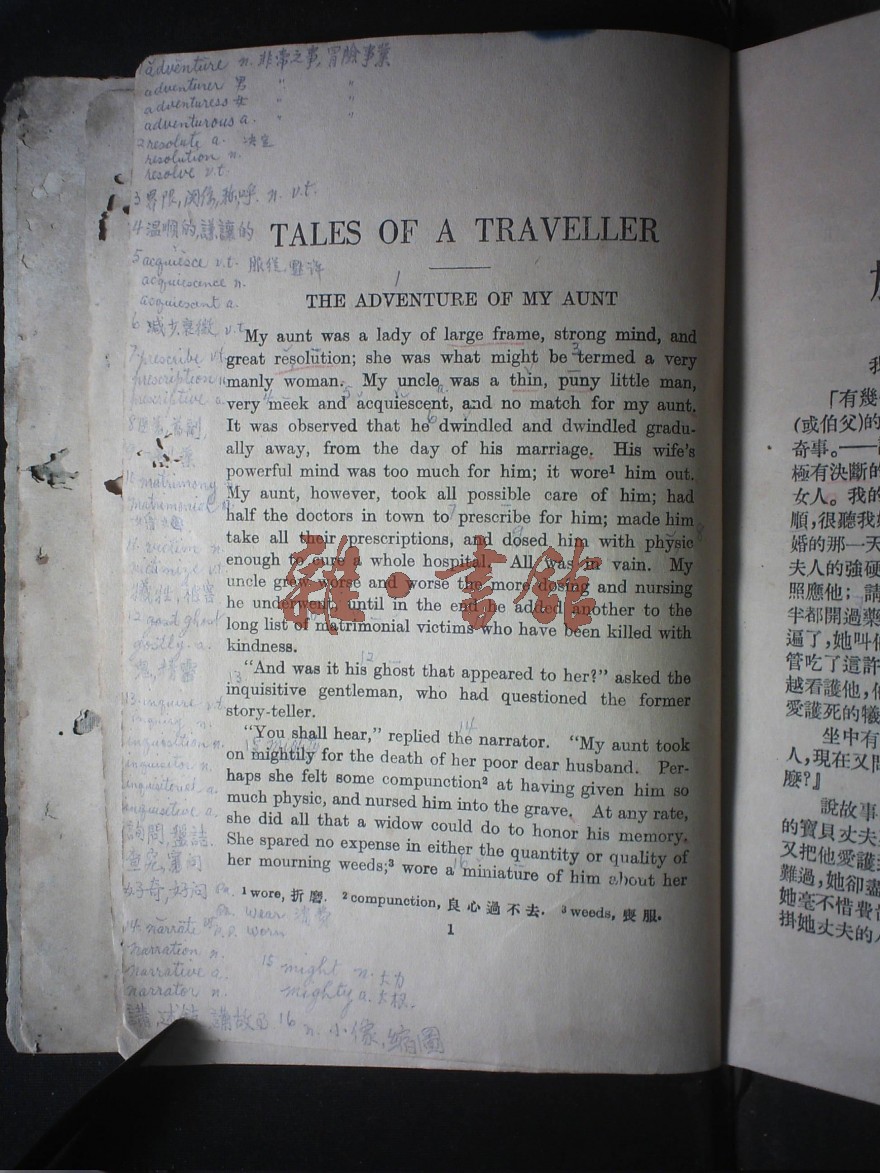 1 adventure n. 非常之事, 冒險事業
adventurer 男 " "
adventuress 女 " "
adventurous a. " "
2 resolute a. 决定
resolution n.
resolve v.t.
3 界限, 関係, 称呼. n. v.t.
4 温順的, 謙讓的
TALES OF A TRAVELLER
5 acquiesce v.t. 服從, 默許
acquiescence n.
acquiescent a.
1
THE ADVENTURE OF MY AUNT
6 减少, 衰微 v.t.
7 prescribe vt.
prescription n.
prescriptive a.
My aunt was a lady of large frame, strong mind, and
great resolution; she was what might be termed a very
manly woman. My uncle was a thin, puny little man,
very meek and acquiescent, and no match for my aunt.
It was observed that he dwindled and dwindled gradu-
ally away, from the day of his marriage. His wife's
powerful mind was too much for him; it wore¹ him out.
My aunt, however, took all possible care of him; had
half the doctors in town to prescribe for him; made him
take all their prescriptions, and dosed him with physic
enough to cure a whole hospital. All was in vain. My
uncle grew worse and worse the more dosing and nursing
he underwent, until in the end he added another to the
long list of matrimonial victims who have been killed with
kindness.
"And was it his ghost that appeared to her?" asked the
inquisitive gentleman, who had questioned the former
story-teller.
"You shall hear," replied the narrator. "My aunt took
on mightily for the death of her poor dear husband. Per-
haps she felt some compunction² at having given him so
much physic, and nursed him into the grave. At any rate,
she did all that a widow could do to honor his memory.
She spared no expense in either the quantity or quality of
her mourning weeds;³ wore a miniature of him about her
¹ wore, 折磨. ² compunction, 良心過不去. ³ weeds, 喪服.
1
10 matrimony
matrimonial a.
11 victim n.
victimize v.t.
犧牲, 被害
12 ghost
ghostly a.
13 inquire v.t.
inquiry n.
inquisition n.
inquisitor n.
inquisitorial a.
inquisitive a.
詢問, 盤詰
查究, 審問
好奇, 好问
wear 消費
p.p. worn
14 narrate vt
narration n.
narrative a.
narrator n.
講故事
15 might n. 大力
mighty a.
16 n. 小像, 縮圖
雜·書館
「有幾
(或伯父)的
奇事。——
極有決斷的
女人。我的
順，很聽我
婚的那一天
夫人的強硬
照應他；請
半都開過藥
逼了，她叫他
管吃了這許
越看護他，
愛護死的犧
坐中有
人，現在又問
麼？』
說故事
的寶貝丈夫
又把他愛護
難過，她卻盡
她毫不惜費
掛她丈夫的